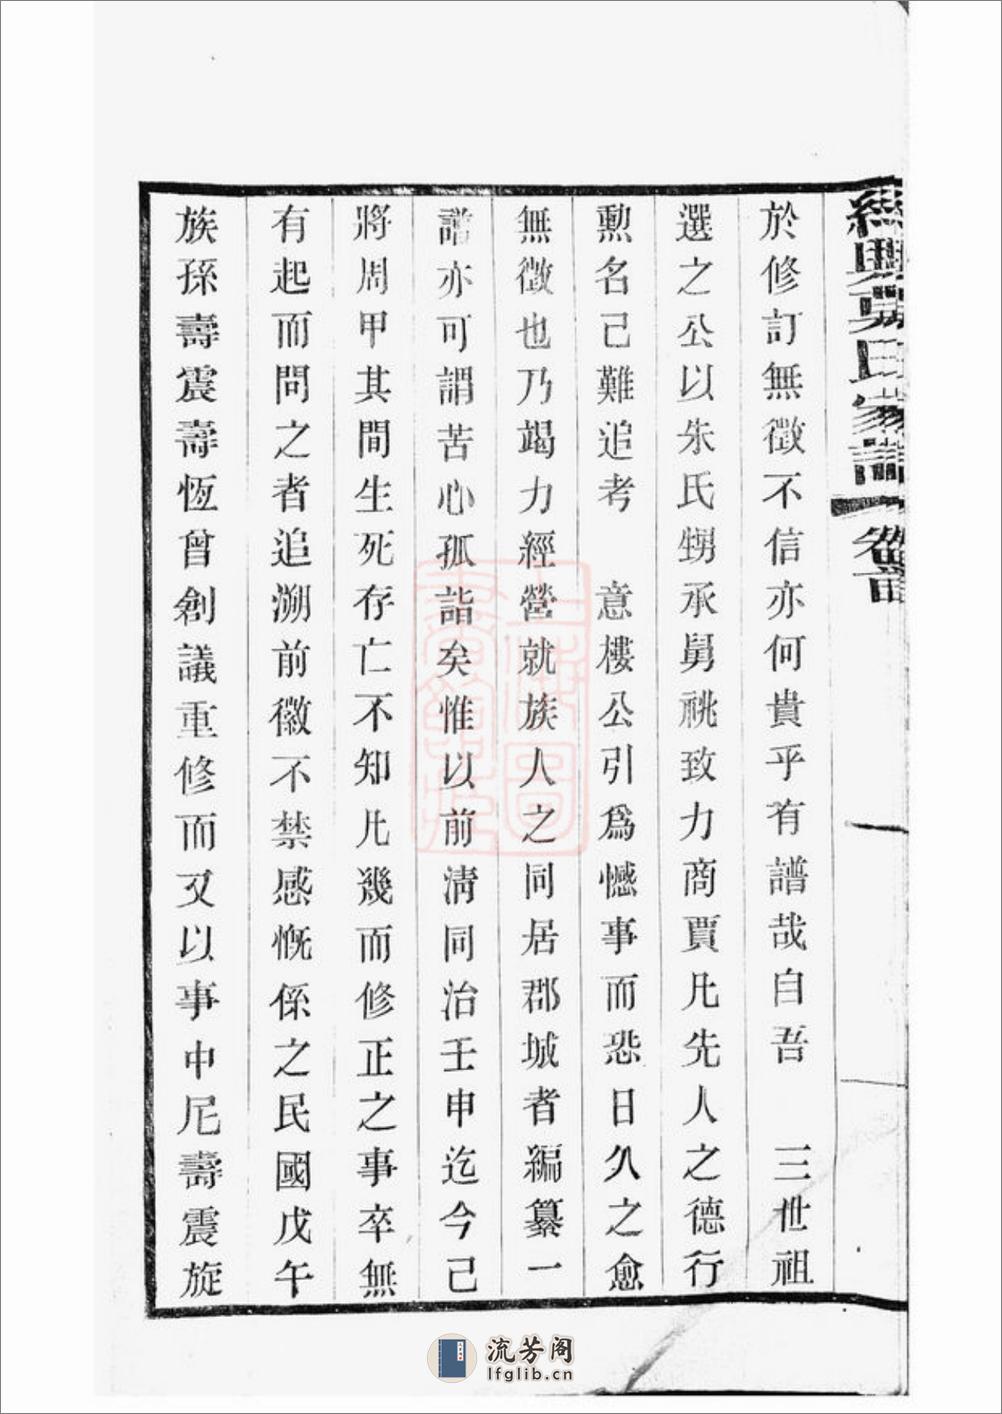 於修訂無徵不信亦何貴乎有譜哉自吾　三世祖
選之公以朱氏甥承舅祧致力商賈凡先人之德行
勲名已難追考　意樓公引爲憾事而恐日久之愈
無徵也乃竭力經營就族人之同居郡城者編纂一
譜亦可謂苦心孤詣矣惟以前清同治壬申迄今已
將周甲其間生死存亡不知凡幾而修正之事卒無
有起而問之者追溯前徽不禁感慨係之民國戊午
族孫壽震壽恆曾創議重修而又以事中尼壽震旋
流芳阁
lfglib.cn